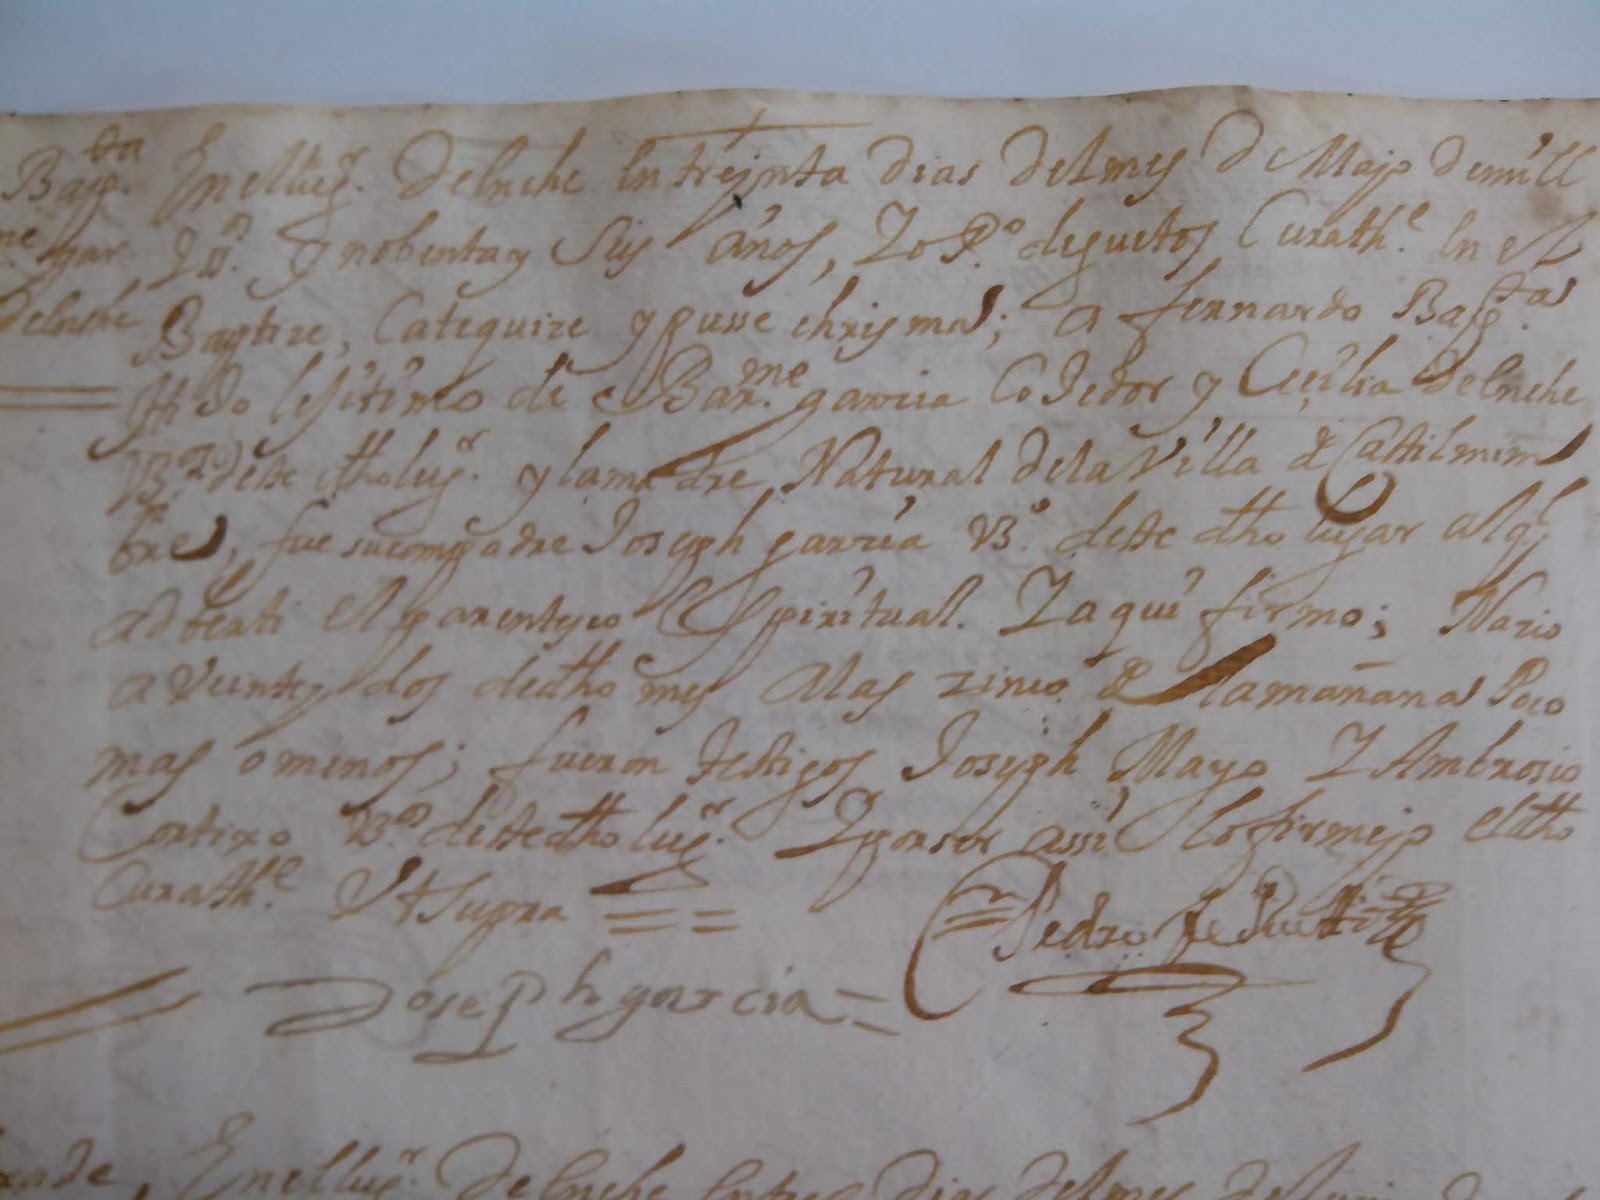 Bap.ta En el lug.r de lnche En treynta dias del mes de Mayo de mill
me gar y nobenta y Seis años, Yo P.o Cura th.e En el
de lnche Baptize, Catequize y pusse chrisma; A fernando Bap.ta
Hido lesitimo de Bar.me garcia Cojedor y Cecilia de lnche
deste dho lug.r y la madre Natural de la Villa de Castilmim
bre, fue su compadre Joseph garcia V.o deste dho lugar al q.l
adberti el parentesco Espiritual. Y aqui firmo; Nazio
a Veinte y dos de dho mes A las zinco de la mañana Poco
mas o menos; fueron testigos Joseph Mayo Y Ambrosio
Contixo V.o deste dho lug.r Y por ser assi lo firme yo el dho
Cura th.e Vt Supra
Pedro de
Joseph garcia
En el lug.r de lnche En tres dias del mes de